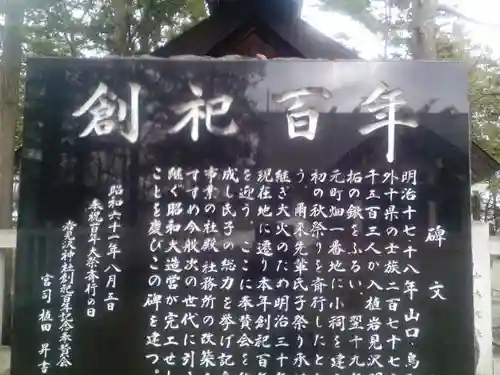 創祀百年
碑文
明治十七・十八年山口・鳥
外十県の士族二百七十七
千五百三人が入植岩見沢
拓の鍬をふるい翌十九年
元町畑一番地に小祠を建
初の秋祭りを斎行したと
う爾来先輩氏子祭り承
継ぎ大火のため明治三十
現在地に遷り本年創祀百年
を迎うここに奉賛会を
成し氏子の総力を挙げ記念
事業の社殿社務所の改築
すすめ今般次の世代に引き
継ぐ昭和大造営が完工せし
ことを慶びこの碑を建つ。
昭和六十一年八月五日
奉祝百年大祭斎行の日
岩見沢神社創祀百年記念奉賛会
宮司植田昇吉